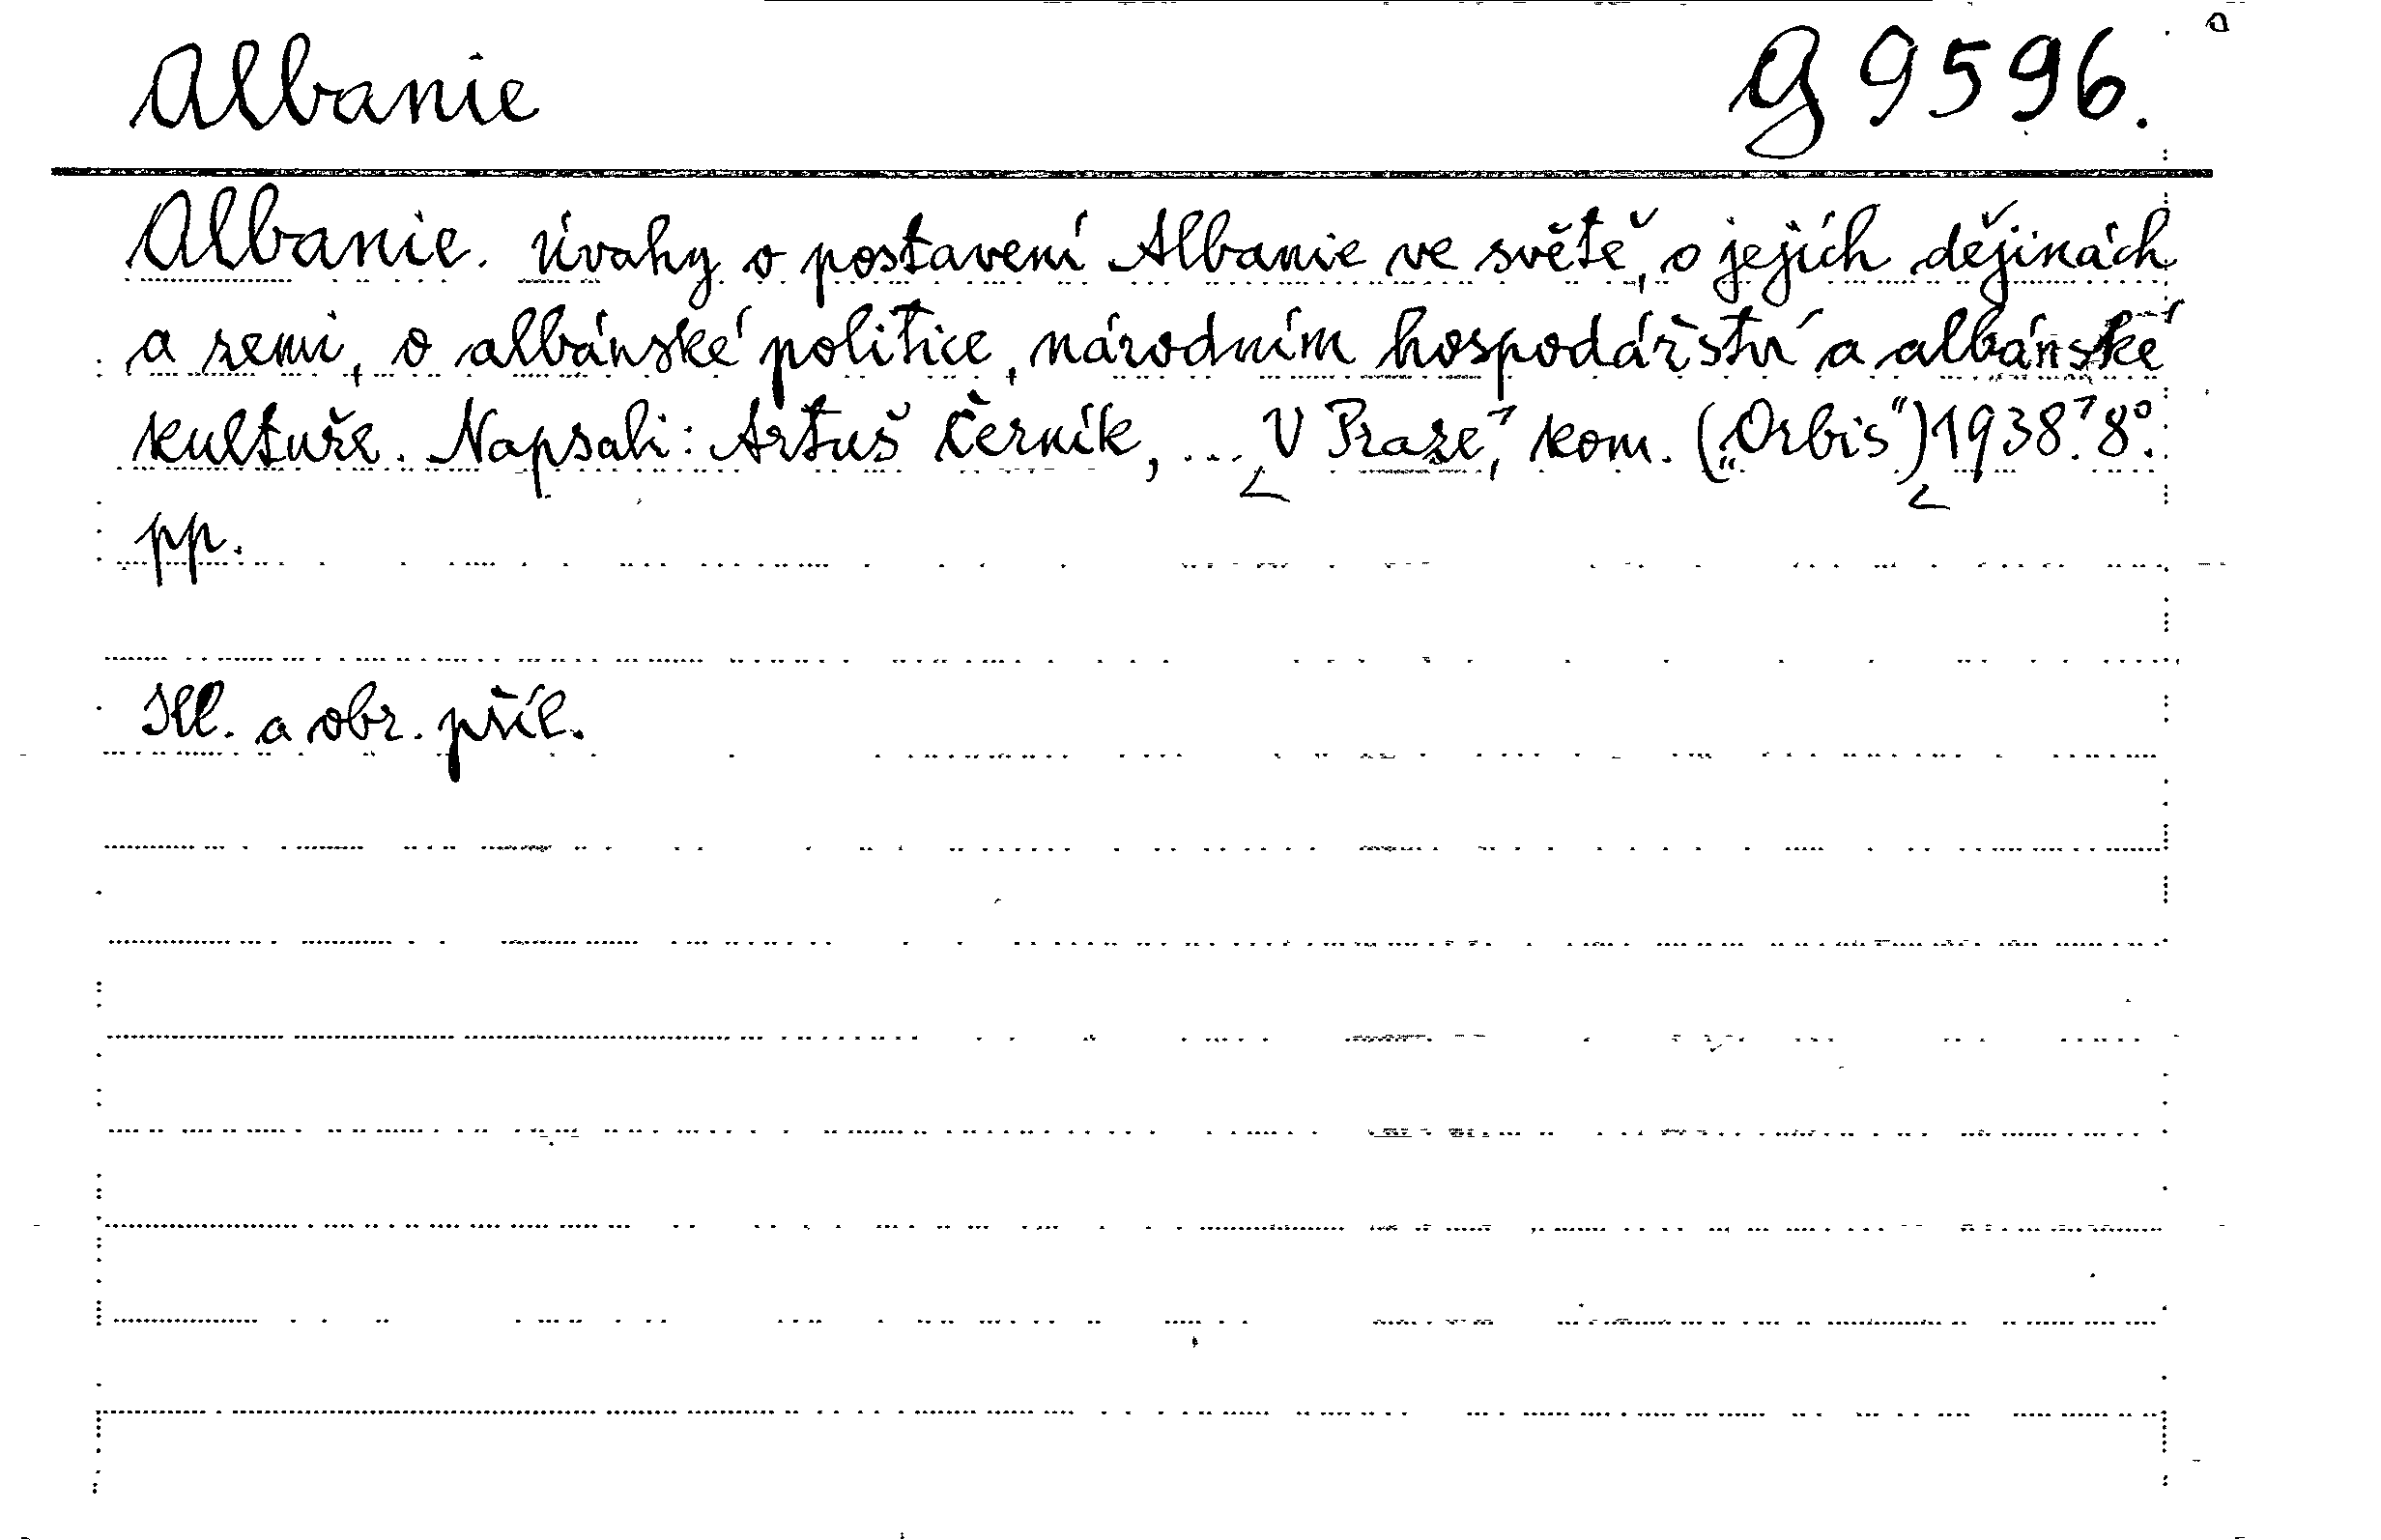 Albanie G 9596.
Albanie. Úvahy o postavení Albanie ve světě, o jejích dějinách
a zemi, o albánské politice, národním hospodářství a albánské
kultuře. Napsali: Artuš Černík, ... V Praze, kom. („Orbis“) 1938. 8°.
pp.
Ill. a obr. příl.